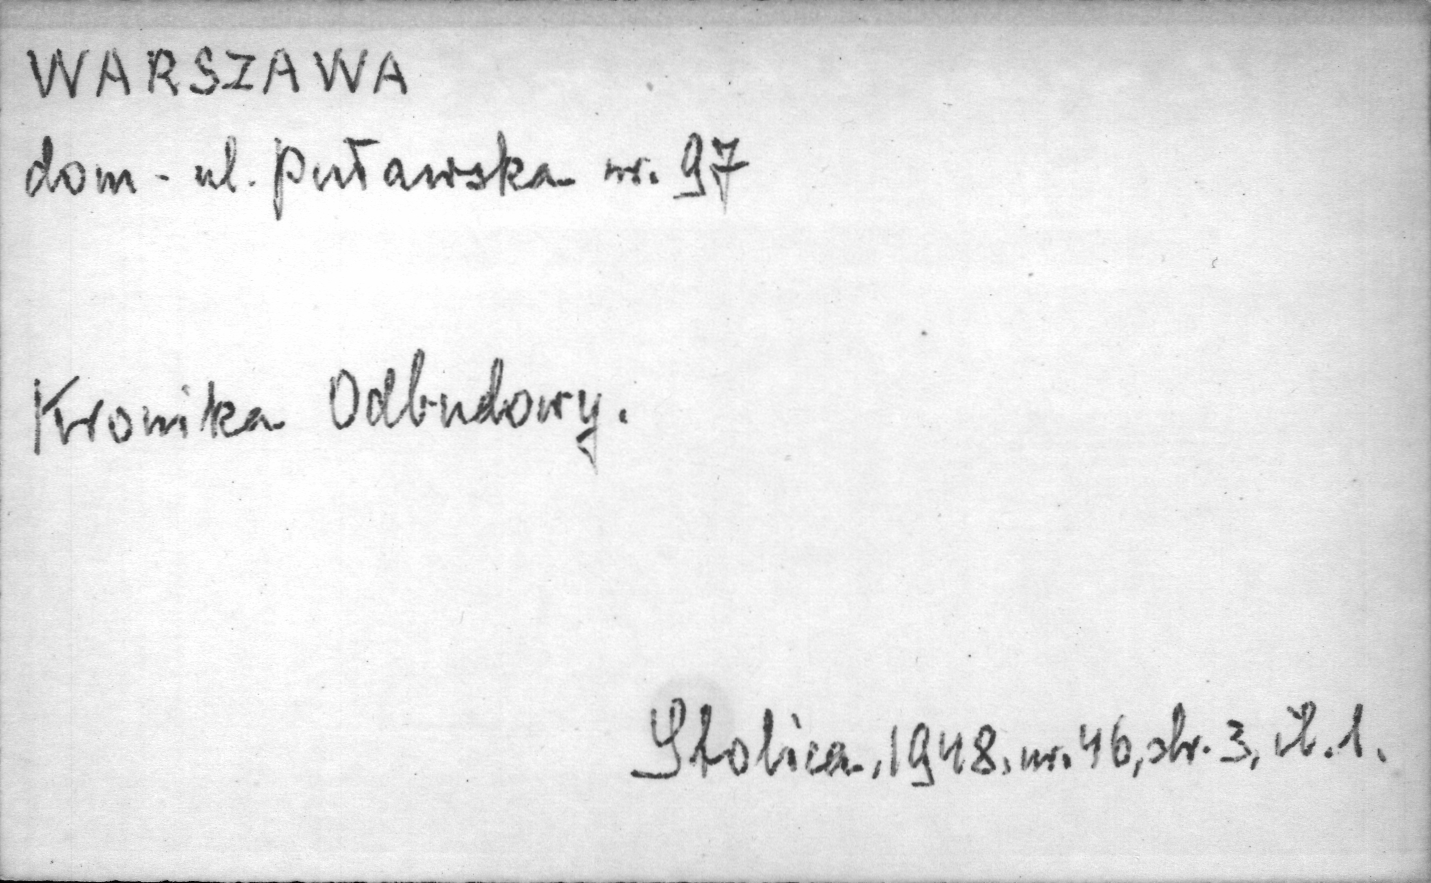 WARSZAWA
dom - ul. Puławska nr. 97
Kronika Odbudowy.
Stolica, 1948, nr. 46, str. 3, il. 1.